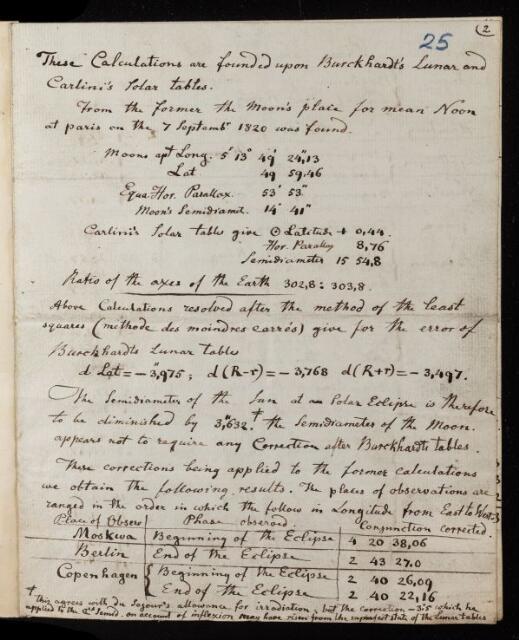 2
25
These Calculations are founded upon Burckhardt's Lunar and
Carlini's Solar tables.
From the former the Moon's place for mean Noon
at paris on the 7 Septembr 1820 was found.
Moons apt Long. 5s 13° 49' 24",13
Lat 49 59.46
Equa. Hor. Parallax. 53' 53"
Moon's Semidiamt. 14' 41"
Carlini's Solar table give ☉ Latitude + 0,44.
Hor. Parallax 8,76
Semidiameter 15 54,8
Ratio of the axes of the Earth 302,8 : 303,8.
Above Calculations resolved after the method of the least
squares (méthode des moindres carrés) give for the error of
Burckhardts Lunar table
d Lat = -3",975; d(R-r) = -3,768 d(R+r) = -3,497.
The Semidiameter of the Sun at a Solar Eclipse is therefore
to be diminished by 3",632.† the Semidiameter of the Moon.
appears not to require any Correction after Burckhardts tables.
These corrections being applied to the former calculations
we obtain the following results. The places of observations are
ranged in the order in which the follow in Longitude from East to West.
Place of Observ Phase observed. Conjunction corrected.
Moskwa Beginning of the Eclipse 4 20 38,06
Berlin End of the Eclipse 2 43 27.0
Copenhagen { Beginning of the Eclipse 2 40 26,09
End of the Eclipse 2 40 22,16
† this agrees with du Sejour's allowance for irradiation, but the correction -3".5 which he
applied to the ☾'s Semid. on account of inflexion may have risen from the imperfect state of the Lunar Tables